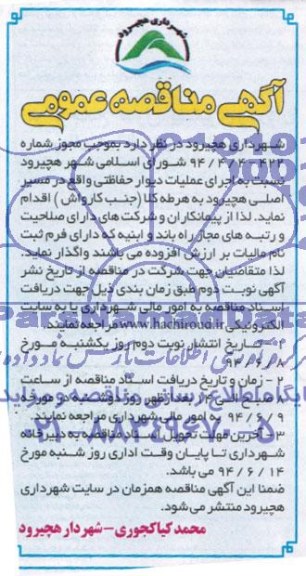 شهرداری هچیرود
آگهی مناقصه عمومی
شهرداری هچیرود در نظر دارد بموجب مجوز شماره
شورای اسلامی شهر هچیرود
نسبت به اجرای عملیات دیوار حفاظتی واقع در مسیر
اصلی هچیرود به هرطه کلا (جنب کارواش) اقدام
نماید. لذا از پیمانکاران و شرکت های دارای صلاحیت
و رتبه های مجاز راه باند و ابنیه که دارای فرم ثبت
نام مالیات بر ارزش افزوده می باشند واگذار نماید.
لذا متقاضیان جهت شرکت در مناقصه از تاریخ نشر
آگهی نوبت دوم طبق زمان بندی ذیل جهت دریافت
اسناد مناقصه به امور مالی شهرداری یا به سایت
الکترونیکی www.hachiroud.ir مراجعه نمایند.
۱- تاریخ انتشار نوبت دوم روز یکشنبه مورخ
۹۴/۶/۸
۲- زمان و تاریخ دریافت اسناد مناقصه از ساعت
۸ صبح الی ۱۴ بعدازظهر روز دوشنبه مورخه
۹۴/۶/۹ به امور مالی شهرداری مراجعه نمایند.
۳- آخرین مهلت تحویل اسناد مناقصه به دبیرخانه
شهرداری تا پایان وقت اداری روز شنبه مورخ
۹۴/۶/۱۴ می باشد.
ضمنا این آگهی مناقصه همزمان در سایت شهرداری
هچیرود منتشر می شود.
محمد کیاکجوری - شهردار هچیرود
۰۲۱-۸۸۳۴۹۶۷۰-۵